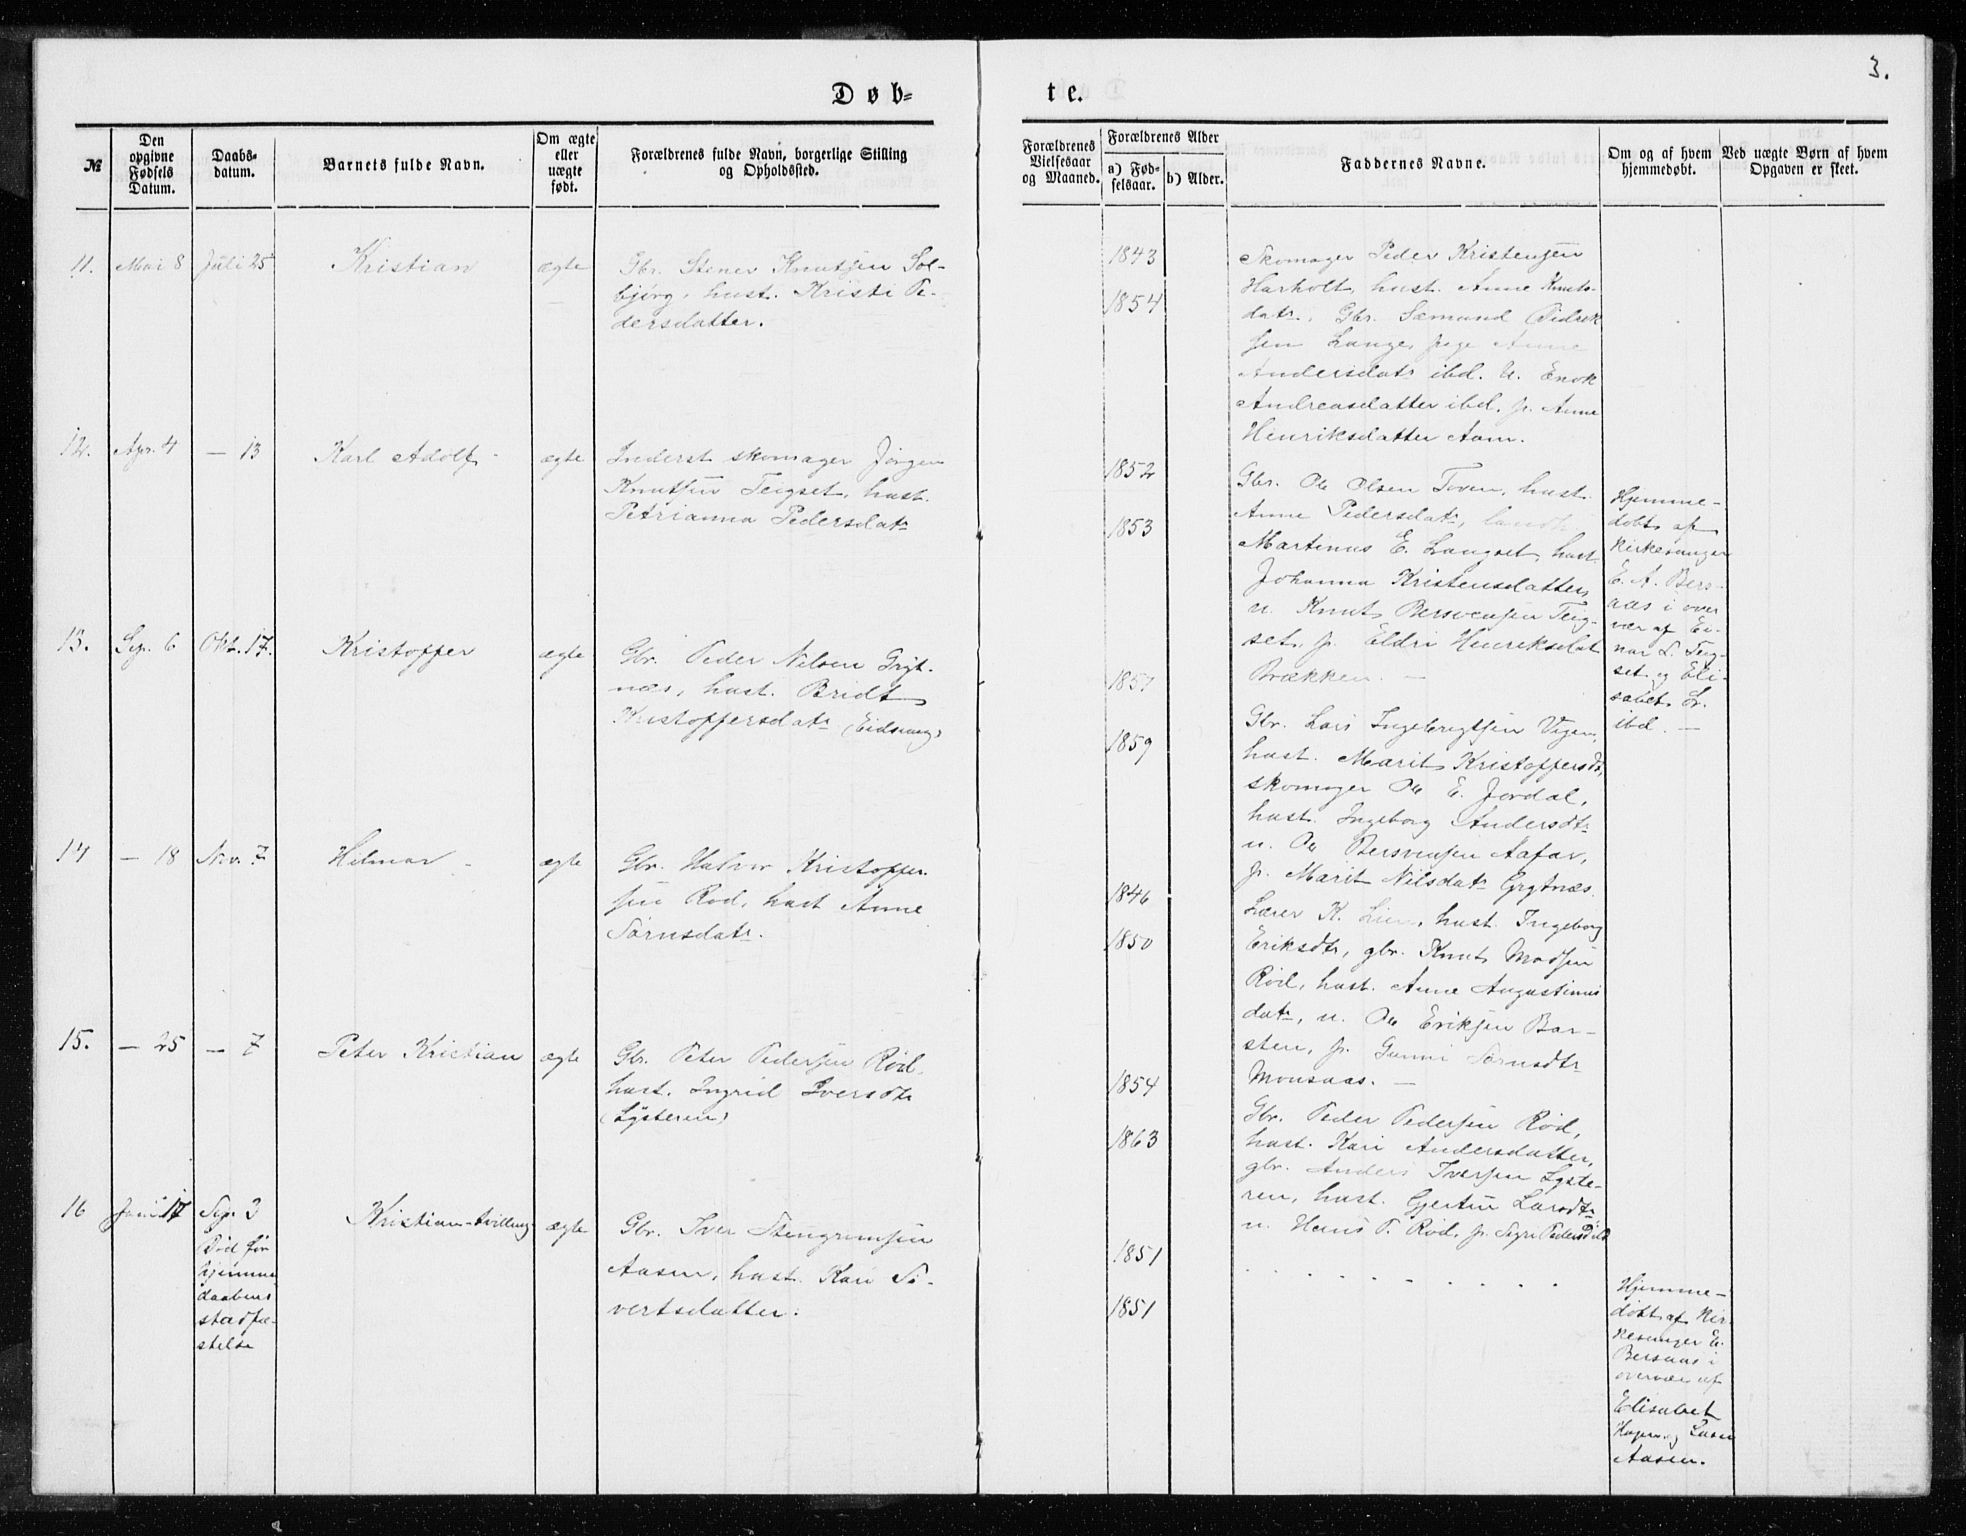 3.
Døb-
te.
№
Den opgivne Fødsels Datum.
Daabs-datum.
Barnets fulde Navn.
Om ægte eller uægte født.
Forældrenes fulde Navn, borgerlige Stilling og Opholdssted.
Forældrenes Vielsesaar og Maaned.
Forældrenes Alder
a) Fødselsaar.
b) Alder.
Faddernes Navne.
Om og af hvem hjemmedøbt.
Ved uægte Børn af hvem Opgaven er skeet.
11.
Mai 8
Juli 25
Kristian
ægte
Gbr. Stener Knutsen Sol-
bjørg, hust. Kristi Pe-
dersdatter.
1843
1854
Skomager Peder Kristensen
Harholt, hust. Anne Knuts-
datr. Gbr. Sæmund Didrik
sen Lange, pige Anne
Andersdatr ibd. U. Enok
Andreasdatter ibd. p. Anne
Henriksdatter Aam.
12.
Apr. 4
— 13
Karl Adolf
ægte
Inderst skomager Jørgen
Knutsen Teigset, hust.
Petrianna Pedersdatr
1852
1853
Gbr. Ole Olsen Toven, hust.
Anne Pedersdatr,
Martinus E. Langset, hust.
Johanna Kristensdatter,
u. Knut Bersvensen Teig-
set, p. Eldri Henriksdat
Brækken. —
Hjemme-
døbt af
kirkesanger
E. A. Bers-
aas i over
vær af Ei-
nar L. Teig-
set og Eli-
sabet Lr.
ibd. —
13.
Sep. 6
Okt. 17.
Kristoffer
ægte
Gbr. Peder Nilsen Gryt-
næs, hust. Bridt
Kristoffersdatr (Eidsvaag)
1851
1859
Gbr. Lars Ingebrigtsen Vigen,
hust. Marit Kristoffersdt,
skomager Ole E. Jordal,
hust. Ingeborg Andersdtr
u. Ole Bersvensen Aafar,
p. Marit Nilsdatr Grytnæs.
14
— 18
Nov. 7
Hilmar
ægte
Gbr. Halvor Kristoffer
sen Rød, hust Anne
Sørnsdatr.
1846
1850
Lærer K. Lien, hust. Ingeborg
Eriksdtr, gbr. Knut Madsen
Rød, hust. Anne Augustinus
datr, u. Ole Eriksen Bar-
sten, p. Gunni Sørnsdtr
Monsaas. —
15.
— 25
— 7
Peter Kristian
ægte
Gbr. Peter Pedersen Rød,
hust. Ingrid Iversdtr
(Lysteren)
1854
1863
Gbr. Peder Pedersen Rød,
hust. Kari Andersdatter,
gbr. Anders Iversen Lyste-
ren, hust. Gjertru Larsdtr
u. Hans P. Rød, p. Sigri Pedersd ibd
16
Juni 17
Sep. 3
Død før
hjemme
daabens
stadfæ-
stelse
Kristian - tvilling
ægte
Gbr. Iver Stengrimsen
Aasen, hust. Kari Si-
vertsdatter.
1851
1851
Hjemme-
døbt af kir-
kesanger E.
Bersaas i
overvær af
Elisabet
Hagen og
Aasen.